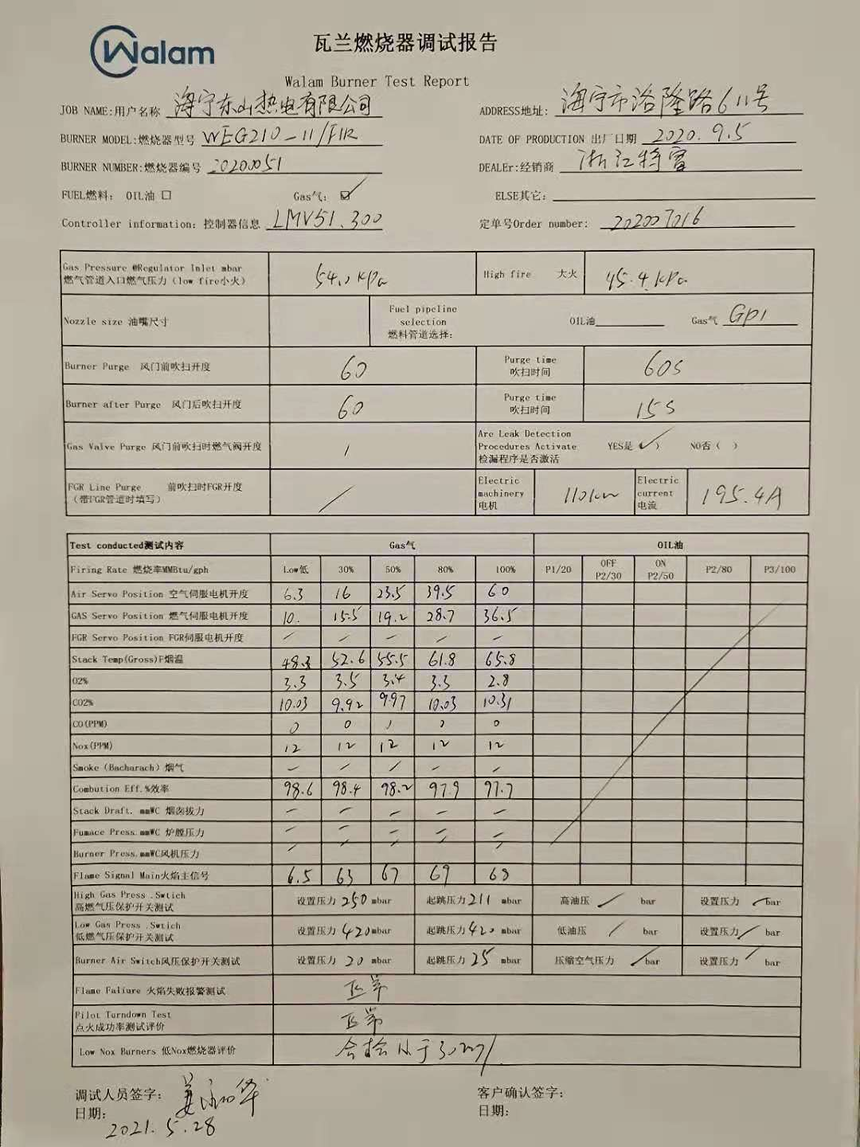 Walam
瓦兰燃烧器调试报告
Walam Burner Test Report
JOB NAME:用户名称 海宁东山热电有限公司 ADDRESS地址: 海宁市洛隆路611号
BURNER MODEL:燃烧器型号 WEG210-11/FIR DATE OF PRODUCTION 出厂日期 2020.9.5
BURNER NUMBER:燃烧器编号 2020051 DEALEr:经销商 浙江特富
FUEL燃料: OIL油 □ Gas气: ☑ ELSE其它:
Controller information: 控制器信息 LMV51.300 定单号Order number: 202007016
Gas Pressure @Regulator Inlet mbar
燃气管道入口燃气压力(low fire小火) 54.1 kPa High fire 大火 45.4 kPa
Nozzle size 油嘴尺寸 Fuel pipeline selection 燃料管道选择: OIL油 Gas气 GP1
Burner Purge 风门前吹扫开度 60 Purge time 吹扫时间 60s
Burner after Purge 风门后吹扫开度 60 Purge time 吹扫时间 15s
Gas Valve Purge 风门前吹扫时燃气阀开度 / Are Leak Detection Procedures Activate 检漏程序是否激活 YES是(✓) NO否( )
FGR Line Purge 前吹扫时FGR开度
(带FGR管道时填写) / Electric machinery 电机 110kw Electric current 电流 195.4A
Test conducted测试内容 Gas气 OIL油
Firing Rate 燃烧率MMBtu/gph Low低 30% 50% 80% 100% P1/20 OFF P2/30 ON P2/50 P2/80 P3/100
Air Servo Position 空气伺服电机开度 6.3 16 23.5 39.5 60
GAS Servo Position 燃气伺服电机开度 10. 15.5 19.2 28.7 36.5
FGR Servo Position FGR伺服电机开度 / / / / /
Stack Temp(Gross)F烟温 48.3 52.6 55.5 61.8 65.8
O2% 3.3 3.5 3.4 3.3 2.8
CO2% 10.03 9.92 9.97 10.03 10.31
CO(PPM) 0 0 0
Nox(PPM) 12 12 12 12 12
Smoke (Bacharach) 烟气 / / / / /
Combution Eff.%效率 98.6 98.4 98.2 97.9 97.7
Stack Draft. mmWC 烟囱拔力 / / / / /
Fumace Press.mmWC 炉膛压力 / / / / /
Burner Press.mmWC风机压力 / / / / /
Flame Signal Main火焰主信号 6.5 63 67 69 68
High Gas Press .Swtich
高燃气压保护开关测试 设置压力 250 mbar 起跳压力 211 mbar 高油压 / bar 设置压力 / bar
Low Gas Press .Swtich
低燃气压保护开关测试 设置压力 420 mbar 起跳压力 420 mbar 低油压 / bar 设置压力 / bar
Burner Air Switch风压保护开关测试 设置压力 20 mbar 起跳压力 25 mbar 压缩空气压力 / bar 设置压力 / bar
Flame Failure 火焰失败报警测试 正常
Pilot Turndown Test
点火成功率测试评价 正常
Low Nox Burners 低Nox燃烧器评价 合格 小于30
调试人员签字: 客户确认签字:
日期: 2021.5.28 日期: